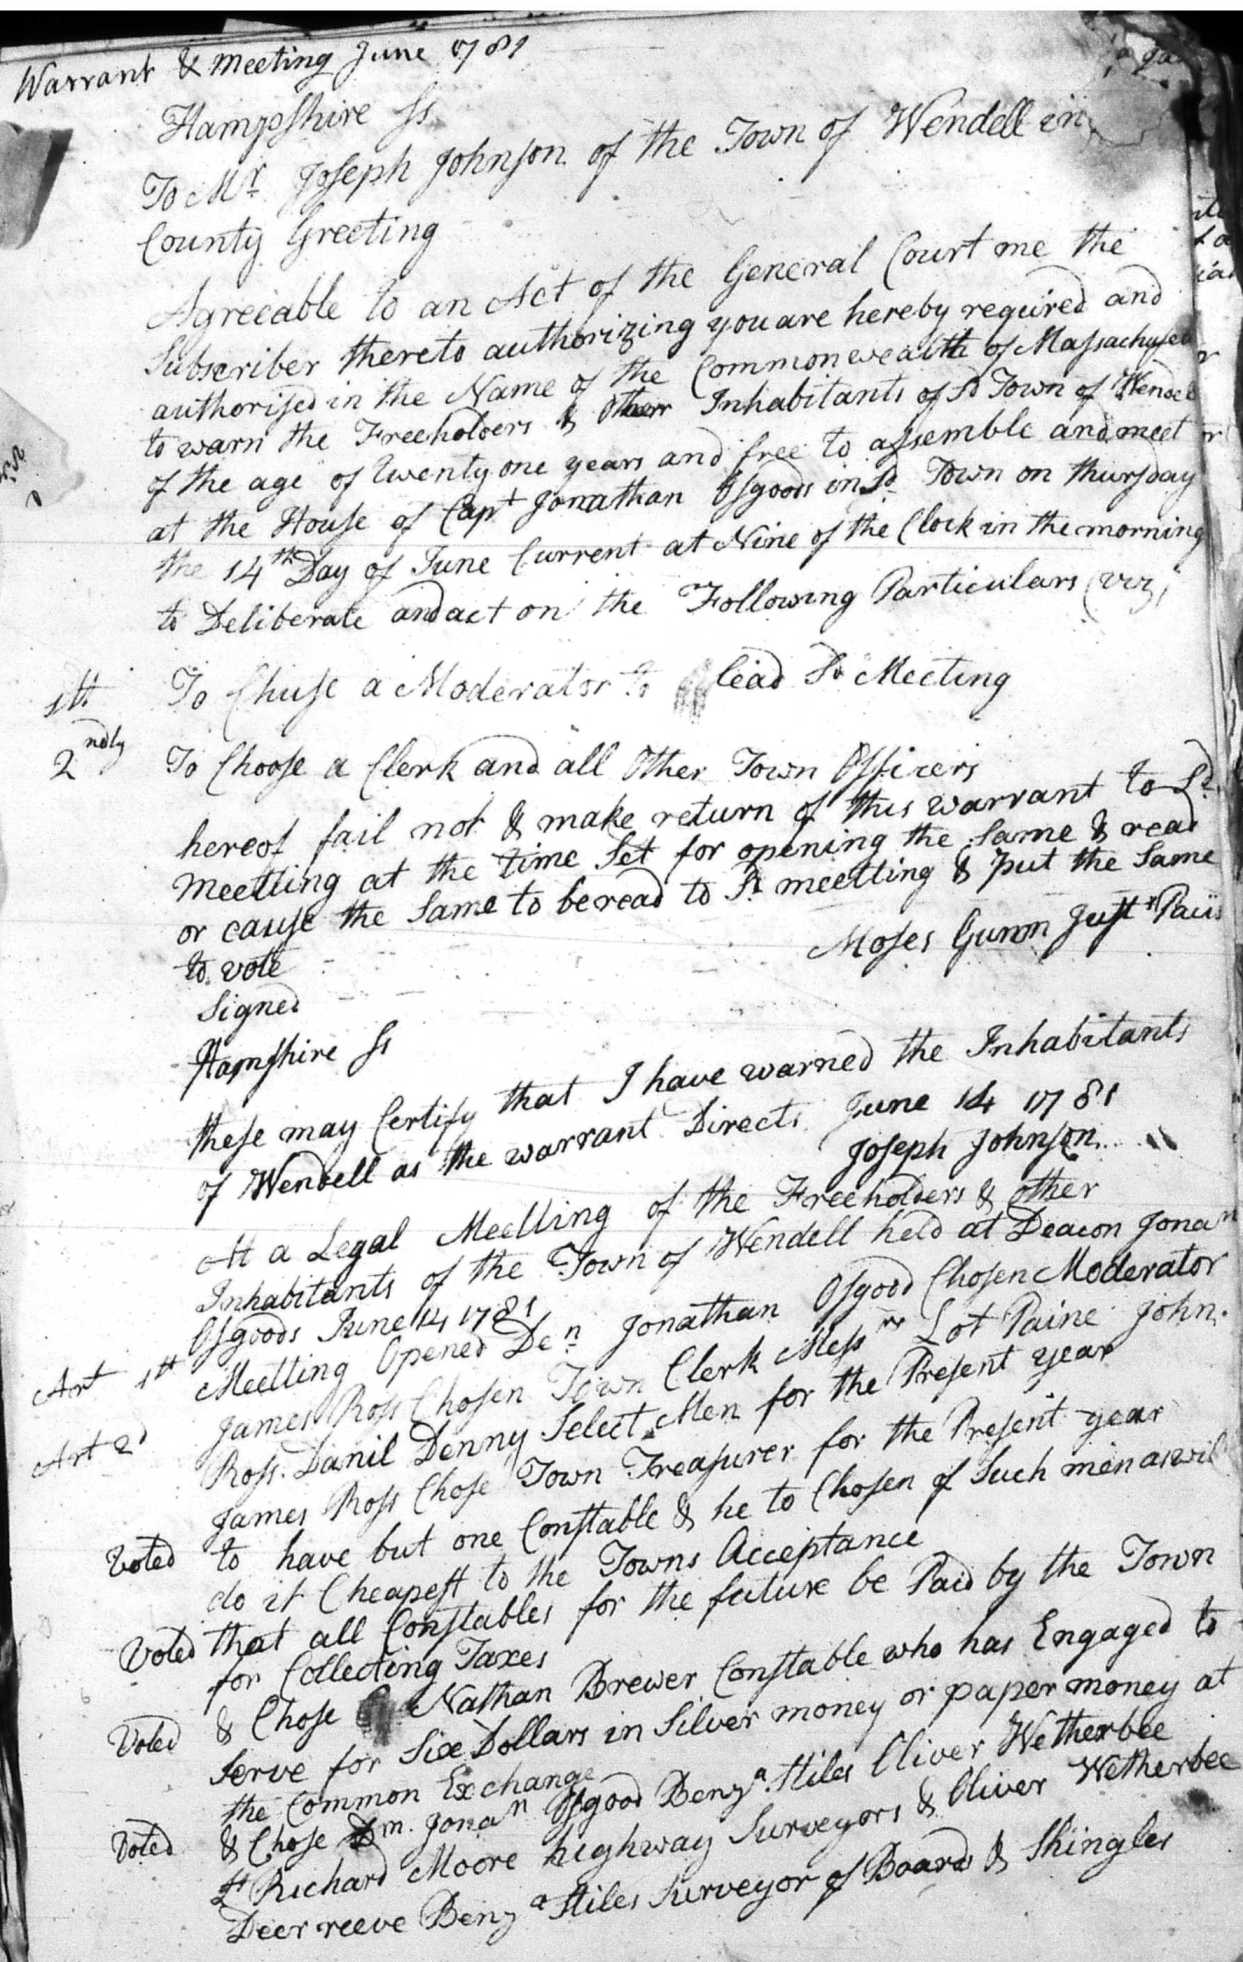 Warrant & Meeting June 1781
Hampshire Ss
To Mr Joseph Johnson of the Town of Wendell in
County Greeting
Agreeable to an Act of the General Court me the
Subscriber thereto authorizing you are hereby required and
authorised in the Name of the Commonwealth of Massachusetts
to warn the Freeholders & Other Inhabitants of Sd Town of Wendell
of the age of Twenty one years and free to assemble and meet
at the House of Capt Jonathan Osgoods in Sd Town on thursday
the 14th Day of June Current at Nine of the Clock in the morning
to Deliberate and act on the Following Particulars (viz)
1st To Chuse a Moderator to lead Sd Meeting
2ndly To Choose a Clerk and all Other Town Officers
hereof fail not & make return of this warrant to Sd
Meetting at the time Set for opening the Same & read
or cause the Same to be read to Sd meetting & put the Same
to vote Moses Gunn Just Pacis
Signed
Hamshire Ss
these may Certify that I have warned the Inhabitants
of Wendell as the warrant Directs June 14 1781
Joseph Johnson
At a Legal Meetting of the Freeholders & other
Inhabitants of the Town of Wendell held at Deacon Jonan
Osgoods June 14 1781
Art 1st Meetting Opened Den Jonathan Osgood Chosen Moderator
Art 2d James Ross Chosen Town Clerk Messrs Lot Paine John
Ross Danil Denny Select Men for the Present year
James Ross Chose Town Treasurer for the Present year
Voted to have but one Constable & he to Chosen of Such men as will
do it Cheapest to the Towns Acceptance
Voted that all Constables for the future be Paid by the Town
for Collecting Taxes
Voted & Chose Nathan Brewer Constable who has Engaged to
Serve for Six Dollars in Silver money or paper money at
the Common Exchange
Voted & Chose Jonan Osgood Benja Stiles Oliver Wetherbee
Lt Richard Moore highway Surveyors & Oliver Wetherbee
Deer reeve Benja Stiles Surveyor of Board & Shingles